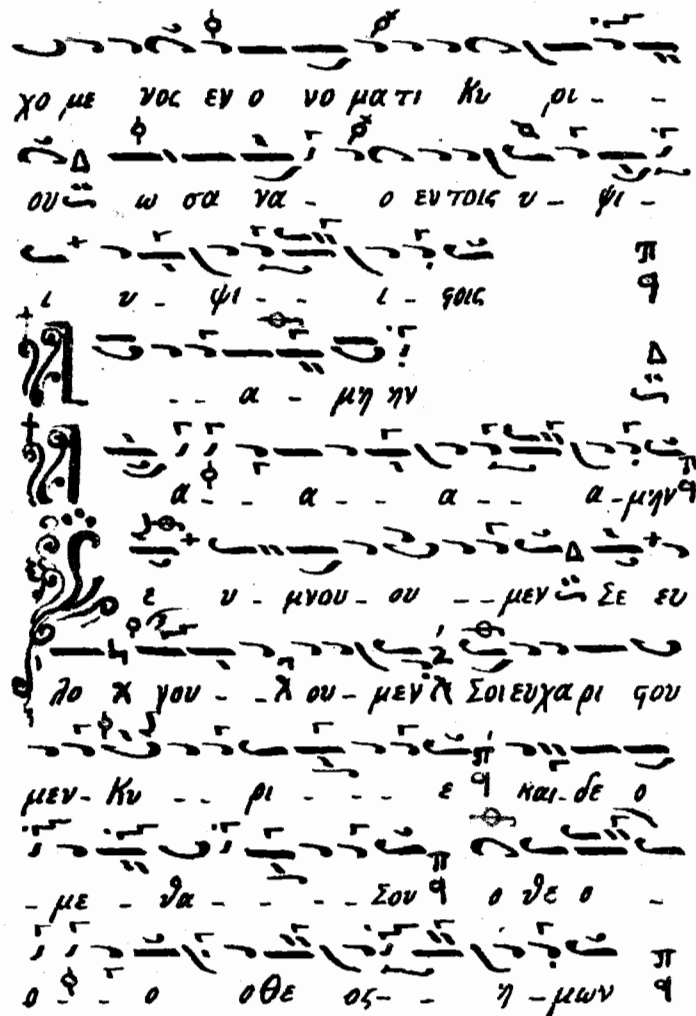 χο με νος εν ο νο μα τι Κυ ρι - -
ου ω σα να - ο εν τοις υ - ψι -
ι υ - ψι - - - ι - ϛοις
Α - - α - μη ην
Α α - - - α - - α - - α - μην
Σε υ - μνου - ου - - μεν Σε ευ
λο γου - - ου - μεν Σοι ευχα ρι ϛου
μεν - Κυ - - ρι - - - - ε και - δε ο
- με - θα - - - - Σου ο θε ο -
ο - - ο ο Θε ος - - η - μων